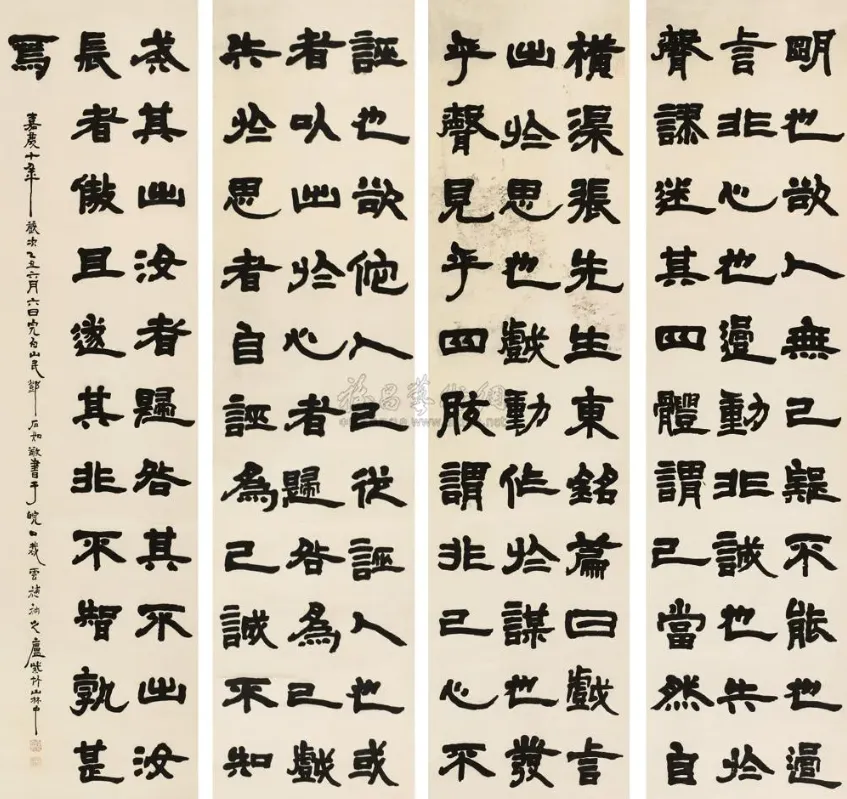 明也欲人無己疑不能也過
言非心也過動非誠也失於
聲謬迷其四體謂己當然自
橫渠張先生東銘篇曰戲言
出於思也戲動作於謀也發
乎聲見乎四肢謂非己心不
誣也欲佗人己從誣人也或
者以出於心者歸咎為己戲
失於思者自誣為己誠不知
戒其出汝者歸咎其不出汝
長者傲且遂其非不智孰甚
焉
嘉慶十年歲次乙丑六月六日完白山民鄧石如敬書于皖口裁雲補衲之廬紫竹山林中